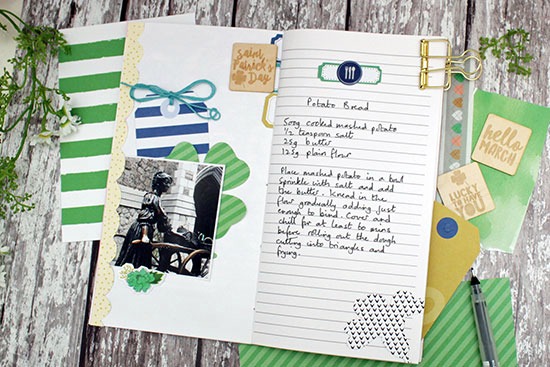 Saint
Patrick's
Day
Potato Bread
500g cooked mashed potato
½ teaspoon salt
25g butter
125g plain flour
Place mashed potato in a bowl
Sprinkle with salt and add
the butter. Knead in the
flour gradually adding just
enough to bind. Cover and
chill for at least 30 mins
before rolling out the dough
cutting into triangles and
frying.
hello
MARCH
LUCKY